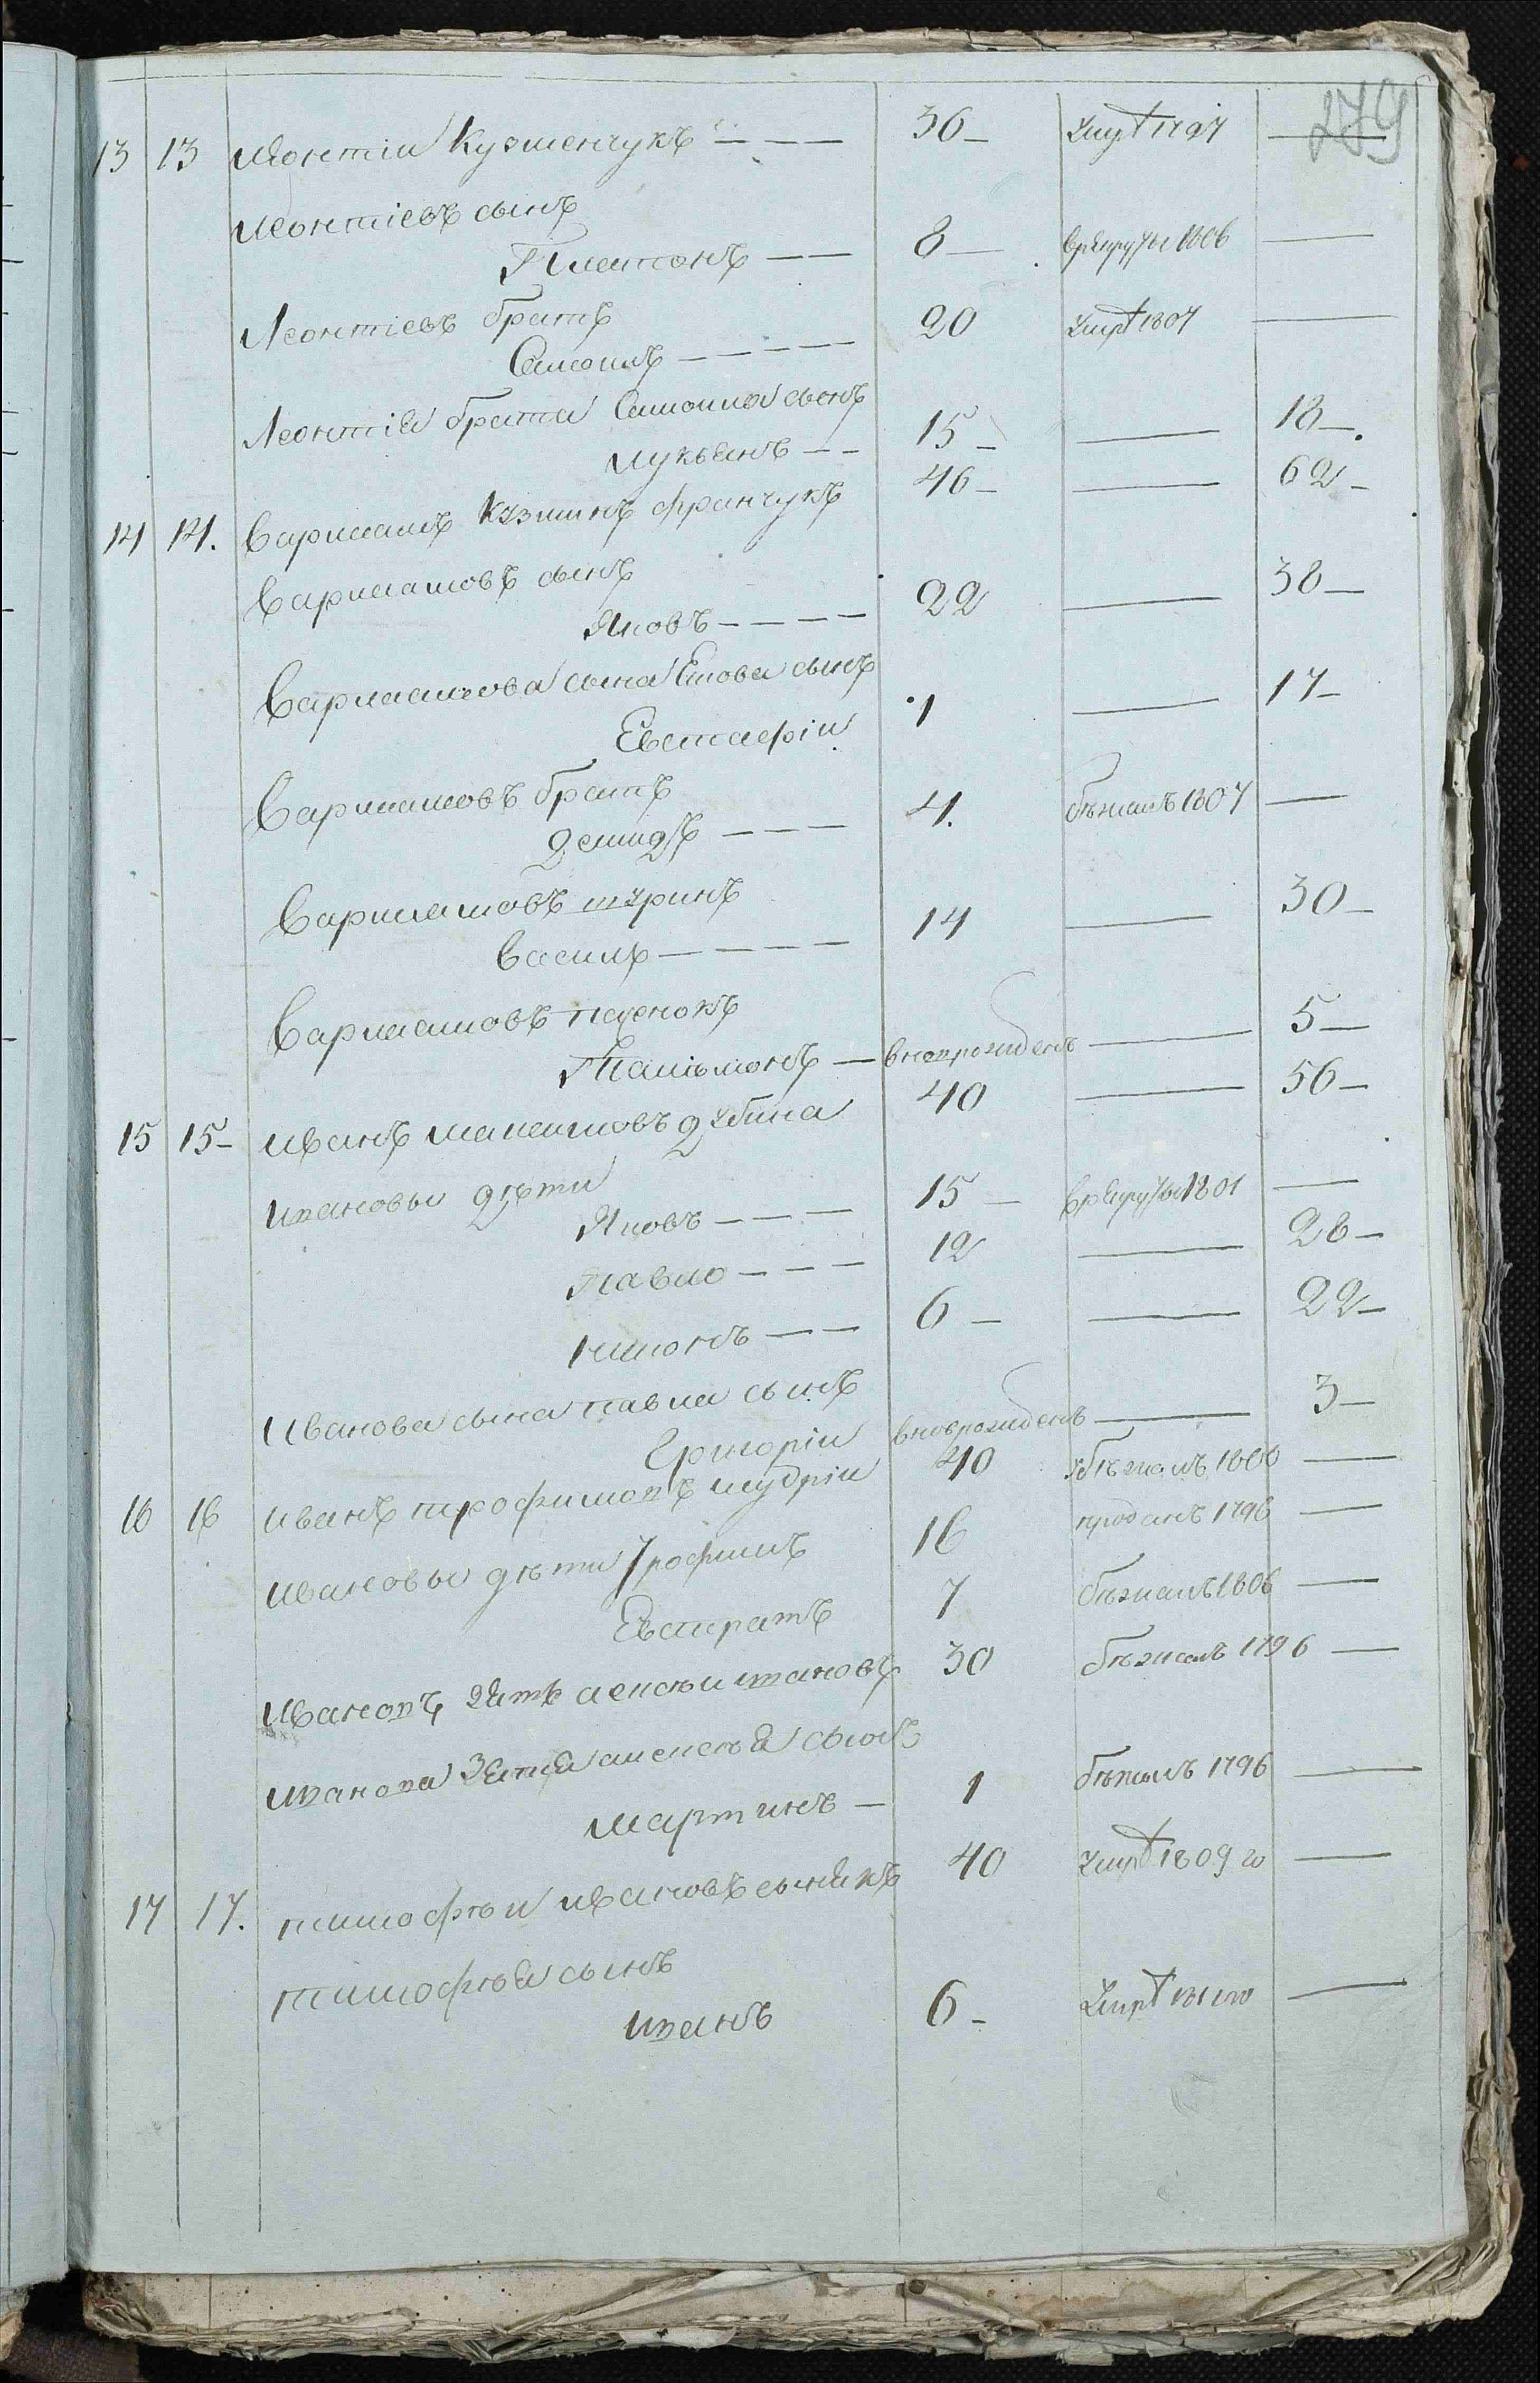 279
13 13 Леонтіи Кузменчукъ 36 умрѣ 1797
Леонтіевъ сынъ
Платонъ 8 в рекруты 1806
Леонтіевъ братъ
Самоилъ 20 умрѣ 1807
Леонтія брата Самоила сынъ
Лукьянъ 15 18
14 14. Варлаамъ Кузминъ Франчукъ 46 62
Варлаамовъ сынъ
Яковъ 22 38
Варлаамова сына Якова сынъ
Евстафіи 1 17
Варлаамовъ братъ
Демидъ 4. бѣжалъ 1807
Варлаамовъ шуринъ
Василь 14 30
Варлаамовъ
вноврожденъ 5
15 15 Иванъ Максимовъ Дубина 40 56
Ивановы дѣти
Яковъ 15 в рекруты 1801
Павло 12 28
6 22
Иванова сына Павла сынъ
Григоріи вноврожденъ 3
16 16 Иванъ Трофимовъ Мудріи 40 бѣжалъ 1800
Ивановы дѣти Трофимъ 16 проданъ 1796
Евстратъ 7 бѣжалъ 1806
Ивановъ зять Алексѣи Ивановъ 30 бѣжалъ 1796
Иванова зятя Алексѣя сынъ
Мартинъ 1 бѣжалъ 1796
17 17. Тимофѣи Ивановъ 40 умрѣ 1809 го
Тимофѣя сынъ
Иванъ 6 умрѣ